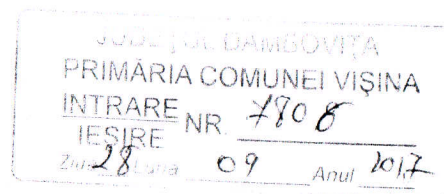 JUDEȚUL DÂMBOVIȚA
PRIMĂRIA COMUNEI VIȘINA
INTRARE
IEȘIRE NR. 7808
Ziua 28 Luna 09 Anul 2017